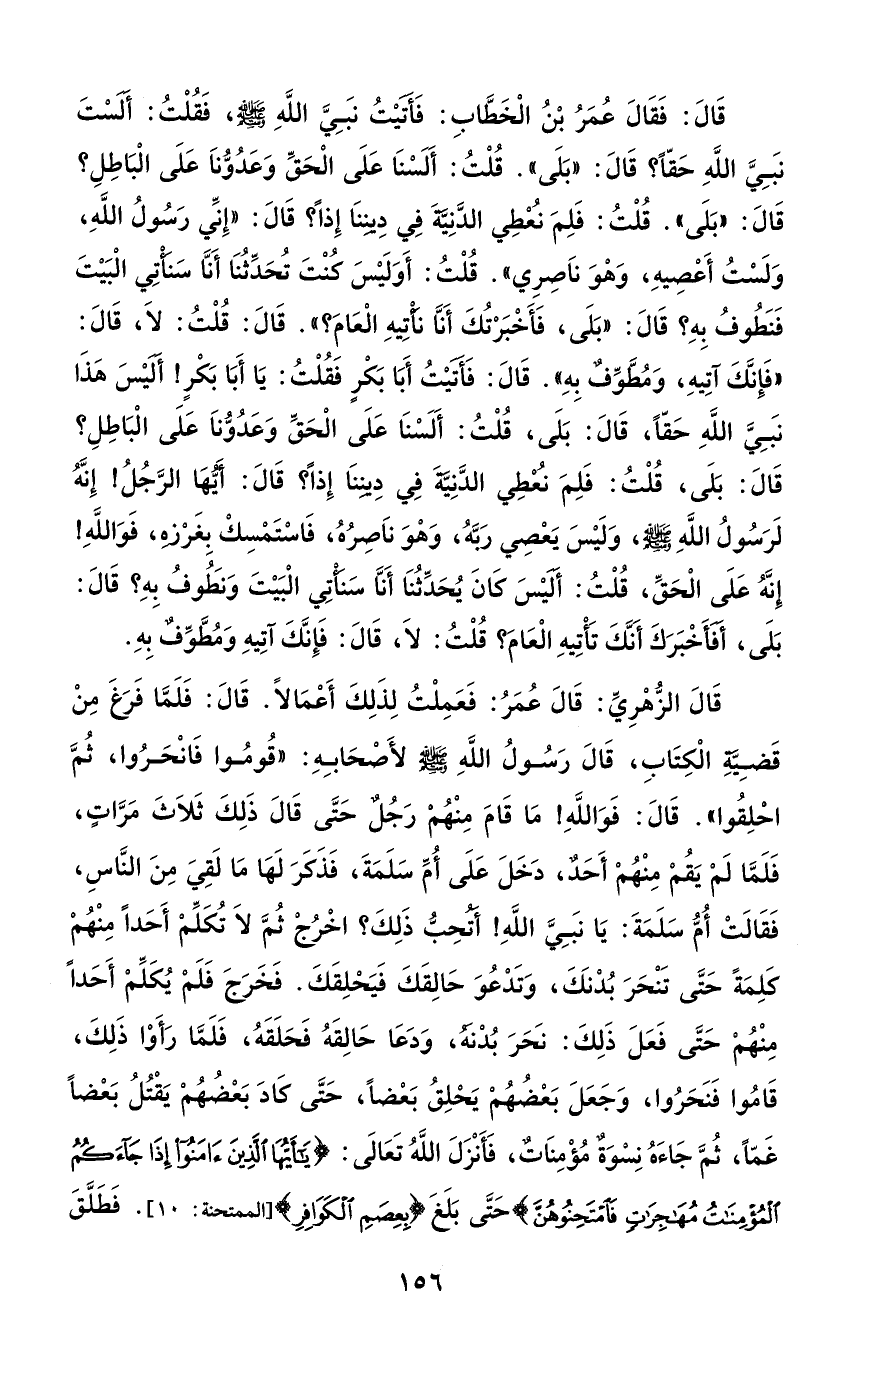 قَالَ: فَقَالَ عُمَرُ بْنُ الْخَطَّابِ: فَأَتَيْتُ نَبِيَّ اللَّهِ ﷺ، فَقُلْتُ: أَلَسْتَ
نَبِيَّ اللَّهِ حَقّاً؟ قَالَ: «بَلَى». قُلْتُ: أَلَسْنَا عَلَى الْحَقِّ وَعَدُوُّنَا عَلَى الْبَاطِلِ؟
قَالَ: «بَلَى». قُلْتُ: فَلِمَ نُعْطِي الدَّنِيَّةَ فِي دِينِنَا إِذاً؟ قَالَ: «إِنِّي رَسُولُ اللَّهِ،
وَلَسْتُ أَعْصِيهِ، وَهْوَ نَاصِرِي». قُلْتُ: أَوَلَيْسَ كُنْتَ تُحَدِّثُنَا أَنَّا سَنَأْتِي الْبَيْتَ
فَنَطُوفُ بِهِ؟ قَالَ: «بَلَى، فَأَخْبَرْتُكَ أَنَّا نَأْتِيهِ الْعَامَ؟». قَالَ: قُلْتُ: لاَ، قَالَ:
«فَإِنَّكَ آتِيهِ، وَمُطَّوِّفٌ بِهِ». قَالَ: فَأَتَيْتُ أَبَا بَكْرٍ فَقُلْتُ: يَا أَبَا بَكْرٍ! أَلَيْسَ هَذَا
نَبِيَّ اللَّهِ حَقّاً، قَالَ: بَلَى، قُلْتُ: أَلَسْنَا عَلَى الْحَقِّ وَعَدُوُّنَا عَلَى الْبَاطِلِ؟
قَالَ: بَلَى، قُلْتُ: فَلِمَ نُعْطِي الدَّنِيَّةَ فِي دِينِنَا إِذاً؟ قَالَ: أَيُّهَا الرَّجُلُ! إِنَّهُ
لَرَسُولُ اللَّهِ ﷺ، وَلَيْسَ يَعْصِي رَبَّهُ، وَهْوَ نَاصِرُهُ، فَاسْتَمْسِكْ بِغَرْزِهِ، فَوَاللَّهِ!
إِنَّهُ عَلَى الْحَقِّ، قُلْتُ: أَلَيْسَ كَانَ يُحَدِّثُنَا أَنَّا سَنَأْتِي الْبَيْتَ وَنَطُوفُ بِهِ؟ قَالَ:
بَلَى، أَفَأَخْبَرَكَ أَنَّكَ تَأْتِيهِ الْعَامَ؟ قُلْتُ: لاَ، قَالَ: فَإِنَّكَ آتِيهِ وَمُطَّوِّفٌ بِهِ.
قَالَ الزُّهْرِيِّ: قَالَ عُمَرُ: فَعَمِلْتُ لِذَلِكَ أَعْمَالاً. قَالَ: فَلَمَّا فَرَغَ مِنْ
قَضِيَّةِ الْكِتَابِ، قَالَ رَسُولُ اللَّهِ ﷺ لأَصْحَابِهِ: «قُومُوا فَانْحَرُوا، ثُمَّ
احْلِقُوا». قَالَ: فَوَاللَّهِ! مَا قَامَ مِنْهُمْ رَجُلٌ حَتَّى قَالَ ذَلِكَ ثَلاَثَ مَرَّاتٍ،
فَلَمَّا لَمْ يَقُمْ مِنْهُمْ أَحَدٌ، دَخَلَ عَلَى أُمِّ سَلَمَةَ، فَذَكَرَ لَهَا مَا لَقِيَ مِنَ النَّاسِ،
فَقَالَتْ أُمُّ سَلَمَةَ: يَا نَبِيَّ اللَّهِ! أَتُحِبُّ ذَلِكَ؟ اخْرُجْ ثُمَّ لاَ تُكَلِّمْ أَحَداً مِنْهُمْ
كَلِمَةً حَتَّى تَنْحَرَ بُدْنَكَ، وَتَدْعُوَ حَالِقَكَ فَيَحْلِقَكَ. فَخَرَجَ فَلَمْ يُكَلِّمْ أَحَداً
مِنْهُمْ حَتَّى فَعَلَ ذَلِكَ: نَحَرَ بُدْنَهُ، وَدَعَا حَالِقَهُ فَحَلَقَهُ، فَلَمَّا رَأَوْا ذَلِكَ،
قَامُوا فَنَحَرُوا، وَجَعَلَ بَعْضُهُمْ يَحْلِقُ بَعْضاً، حَتَّى كَادَ بَعْضُهُمْ يَقْتُلُ بَعْضاً
غَمّاً، ثُمَّ جَاءَهُ نِسْوَةٌ مُؤْمِنَاتٌ، فَأَنْزَلَ اللَّهُ تَعَالَى: ﴿يَٰٓأَيُّهَا ٱلَّذِينَ ءَامَنُوٓا۟ إِذَا جَآءَكُمُ
ٱلْمُؤْمِنَٰتُ مُهَٰجِرَٰتٍ فَٱمْتَحِنُوهُنَّ﴾ حَتَّى بَلَغَ ﴿بِعِصَمِ ٱلْكَوَافِرِ﴾ [الممتحنة: ١٠]. فَطَلَّقَ
١٥٦